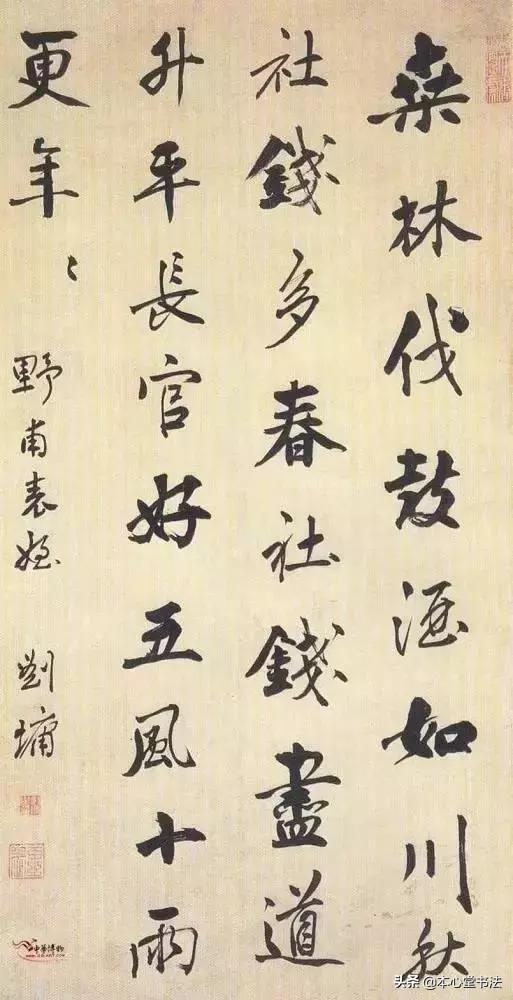 桑林伐鼓酒如川秋
社錢多春社錢盡道
升平長官好五風十雨
更年〻
野甫表姪 劉墉
头条 @本心堂书法